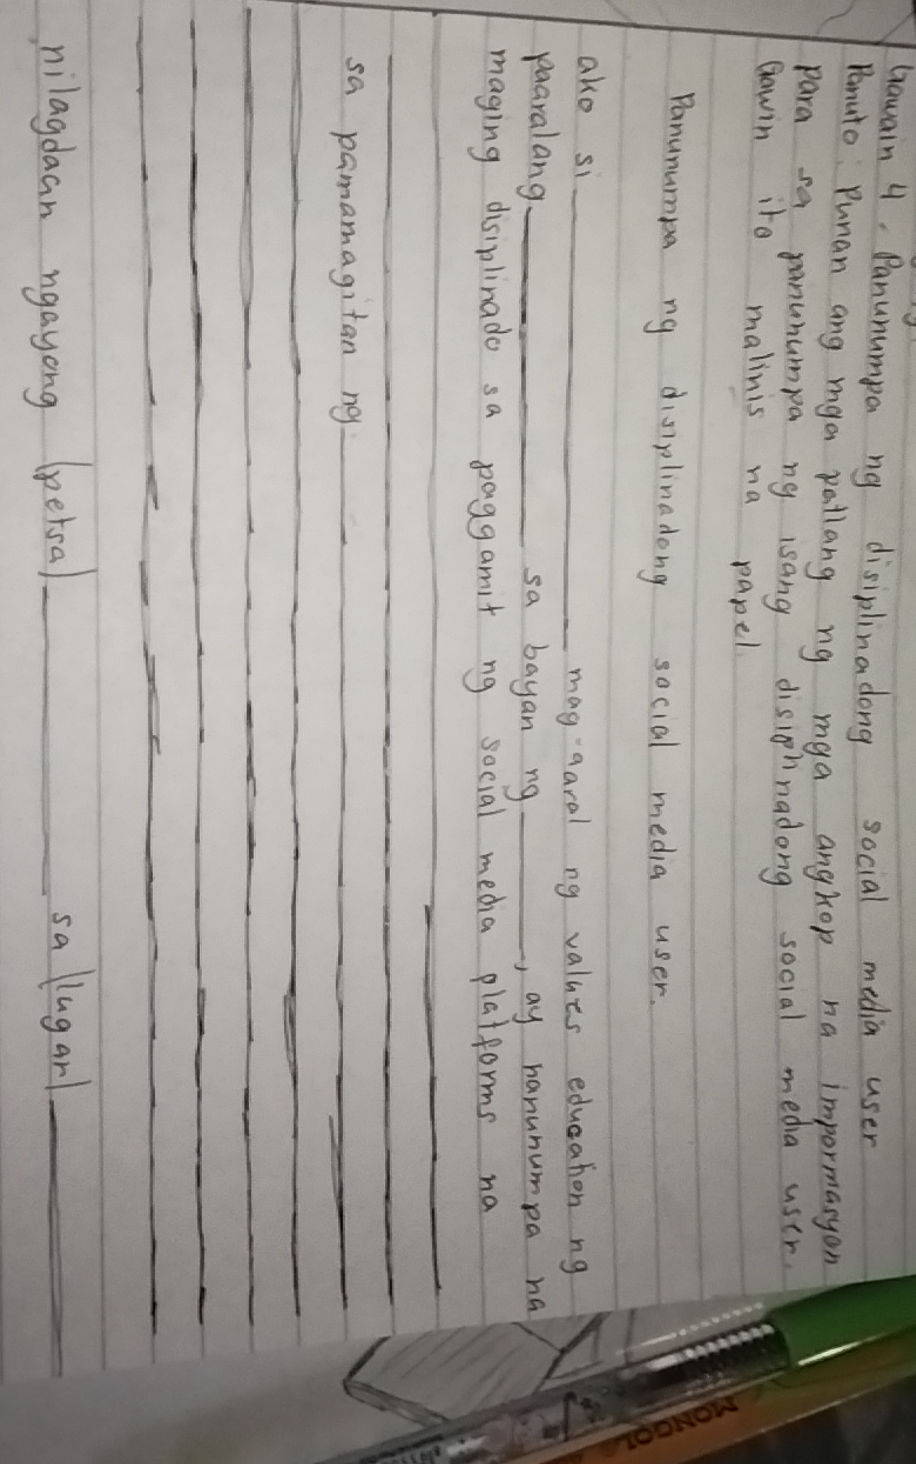 Gawain 4. Panunumpa ng disiplinadong social media user
Panuto: Punan ang mga patlang ng mga angkop na impormasyon
para sa panunumpa ng isang disiplinadong social media user.
Gawin ito malinis na papel.
Panunumpa ng disiplinadong social media user.
ako si ____________ mag-aaral ng values education ng
paaralang ____________ sa bayan ng ______, ay nanunumpa na
maging disiplinado sa paggamit ng social media platforms na
sa pamamagitan ng
nilagdaan ngayong (petsa) ____________ sa (lugar) ____________
MONGOL